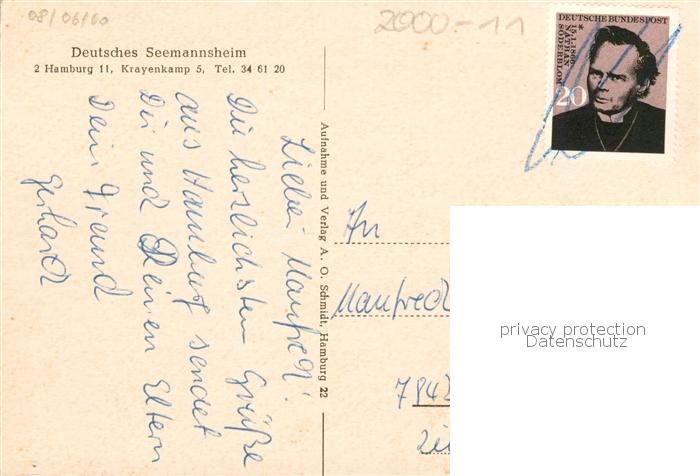 08/06/60
2000-11
Deutsches Seemannsheim
2 Hamburg 11, Krayenkamp 5, Tel. 34 61 20
DEUTSCHE BUNDESPOST
* 15.1.1866
NATHAN
SÖDERBLOM
20
Lieber Manfred!
Die herzlichsten Grüße
aus Hamburg sendet
Dir und Deinen Eltern
Dein Freund
Gerhard
Aufnahme und Verlag A. O. Schmidt, Hamburg 22
An
Manfred
7842
privacy protection
Datenschutz